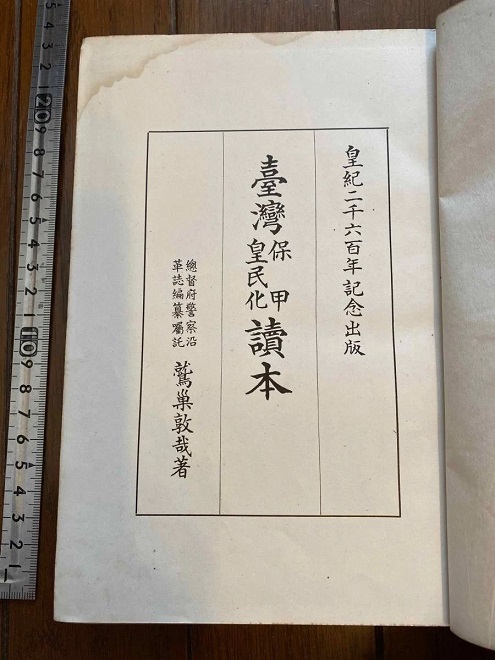 皇紀二千六百年記念出版
臺灣保甲皇民化讀本
總督府警察沿
革誌編纂屬託
鷲巢敦哉著
5 4 3 2 1 20 9 8 7 6 5 4 3 2 1 10 9 8 7 6 5 4 3 2 1